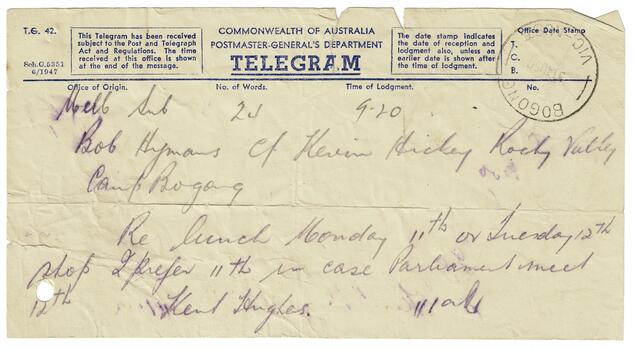 T.G. 42.
Sch.C.5351
6/1947
This Telegram has been received
subject to the Post and Telegraph
Act and Regulations. The time
received at this office is shown
at the end of the message.
COMMONWEALTH OF AUSTRALIA
POSTMASTER-GENERAL'S DEPARTMENT
TELEGRAM
The date stamp indicates
the date of reception and
lodgment also, unless an
earlier date is shown after
the time of lodgment.
Office Date Stamp
T.
C.
B.
BOGONG
VICTORIA
Office of Origin. No. of Words. Time of Lodgment. No.
Melb Sub 24 9-20
Bob Hymans Cf Kevin Hickey Rocky Valley
Camp Bogong
Re lunch Monday 11th or Tuesday 12th
stop I prefer 11th in case Parliament meet
12th Kent Hughes.